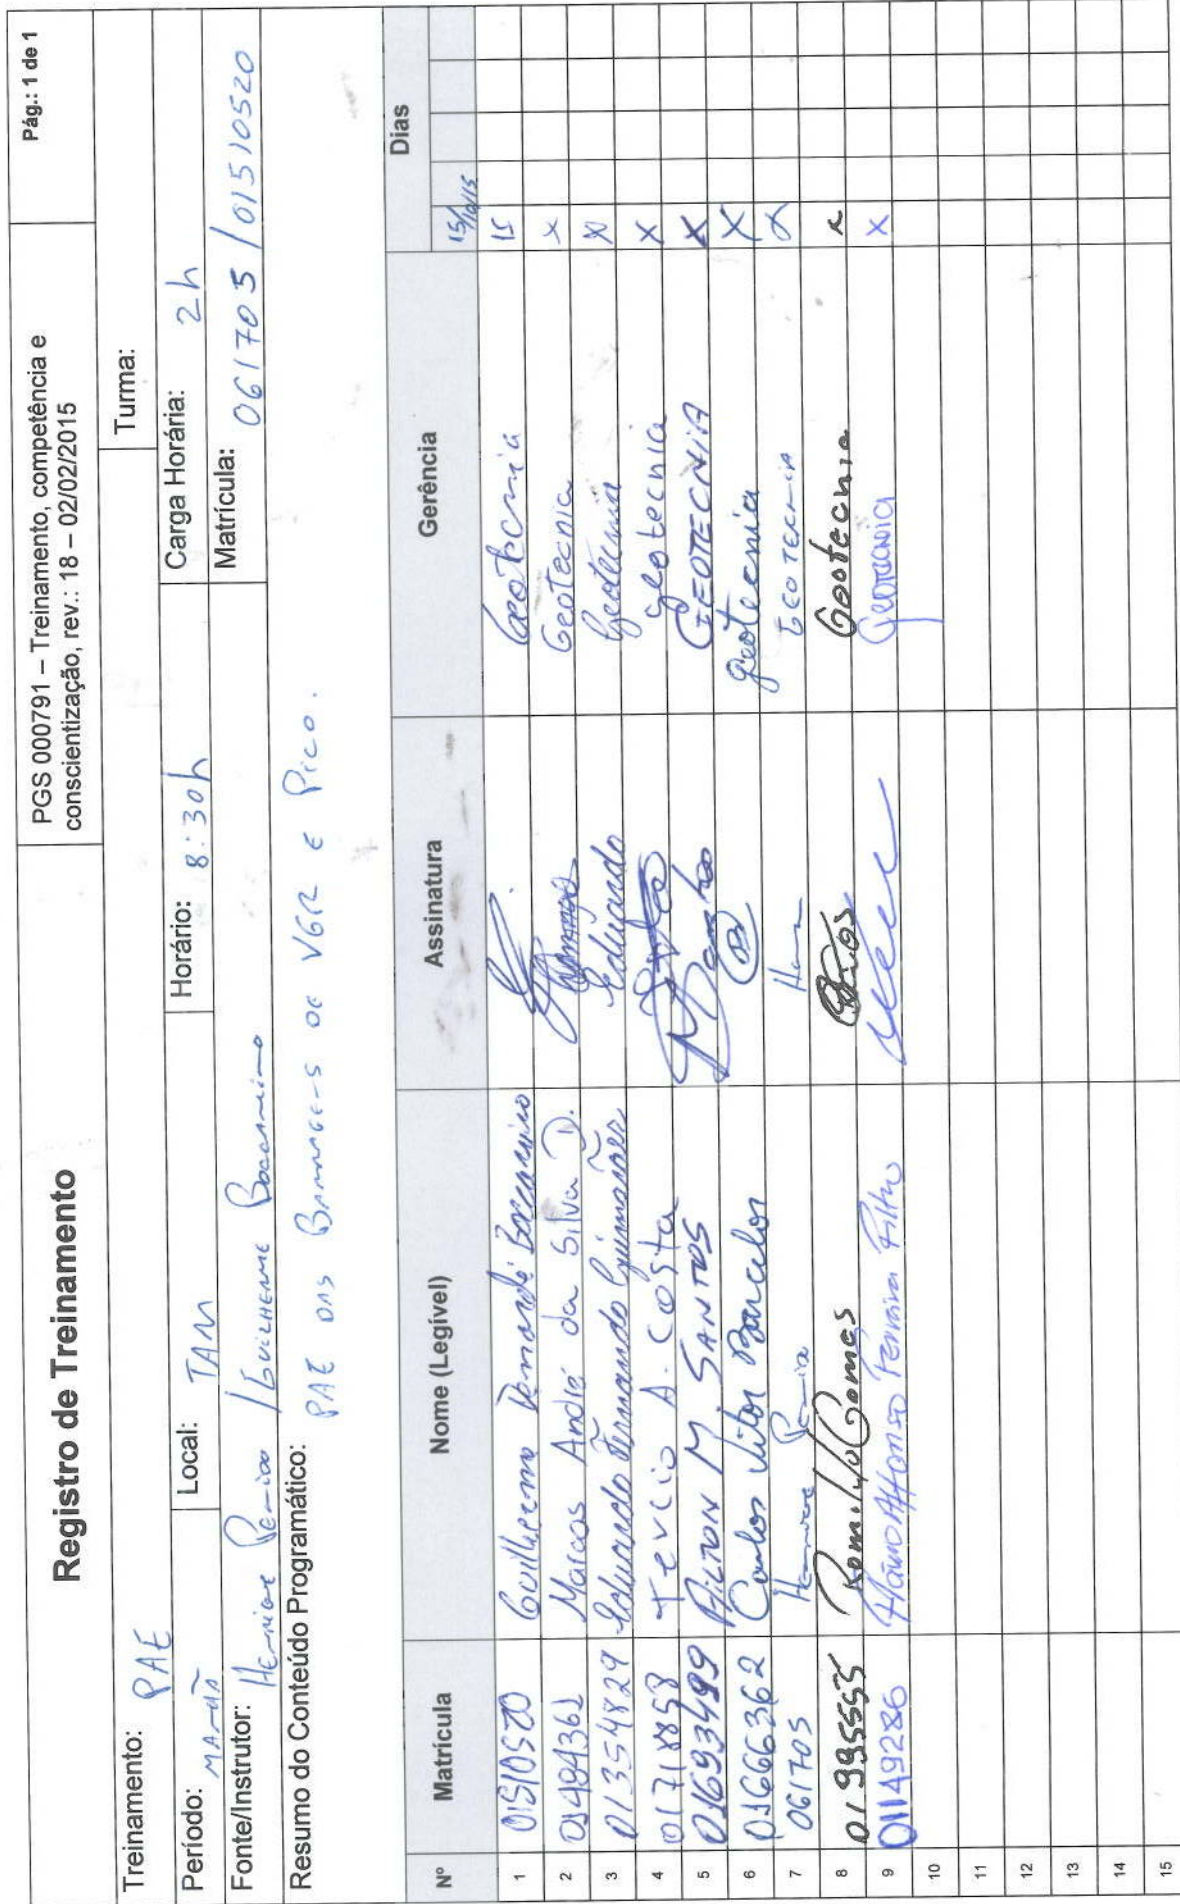 Registro de Treinamento
PGS 000791 – Treinamento, competência e
conscientização, rev.: 18 – 02/02/2015
Pág.: 1 de 1
Treinamento: PAE
Turma:
Período: MANHÃ Local: TAM Horário: 8:30h Carga Horária: 2h
Fonte/Instrutor: Henrique / Guilherme Matrícula: 061705 / 01510520
Resumo do Conteúdo Programático:
PAE DAS BARRAGENS DE VGR E PICO.
Nº Matrícula Nome (Legível) Assinatura Gerência Dias
15/10/15
1 01510520 Guilherme Geotecnia 15
2 01494361 Marcos André da Silva D. Geotecnia X
3 01354829 Eduardo Fernando Guimarães Eduardo Geotecnia X
4 01718858 Tercio A. Costa Geotecnia X
5 01693499 AILTON M. SANTOS GEOTECNIA X
6 01666362 Carlos Vitor Barcelos Geotecnia X
7 061705 Henrique GEOTECNIA X
8 01995555 Romulo Gomes Geotecnia X
9 01149286 Affonso Ferreira Filho Geotecnia X
10
11
12
13
14
15